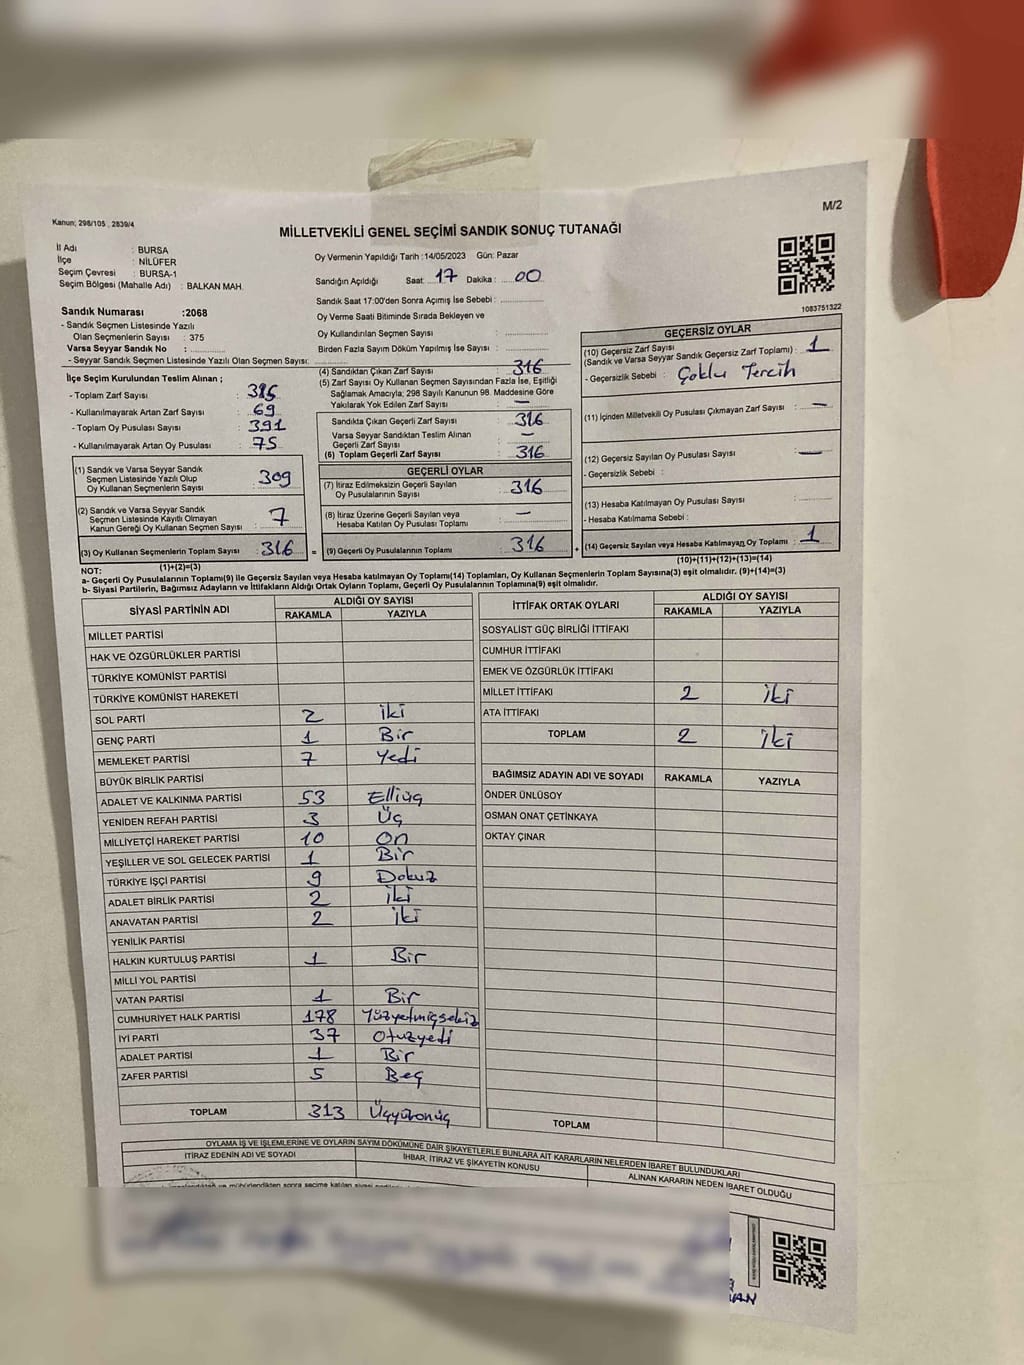 Kanun; 298/105 , 2839/4
M/2
MİLLETVEKİLİ GENEL SEÇİMİ SANDIK SONUÇ TUTANAĞI
İl Adı : BURSA
İlçe : NİLÜFER
Seçim Çevresi : BURSA-1
Seçim Bölgesi (Mahalle Adı) : BALKAN MAH.
Oy Vermenin Yapıldığı Tarih :14/05/2023 Gün: Pazar
Sandığın Açıldığı Saat: 17 Dakika: 00
Sandık Saat 17:00'den Sonra Açımış İse Sebebi :
Oy Verme Saati Bitiminde Sırada Bekleyen ve
Oy Kullandırılan Seçmen Sayısı :
Birden Fazla Sayım Döküm Yapılmış İse Sayısı :
1083751322
Sandık Numarası :2068
- Sandık Seçmen Listesinde Yazılı
Olan Seçmenlerin Sayısı : 375
Varsa Seyyar Sandık No :
- Seyyar Sandık Seçmen Listesinde Yazılı Olan Seçmen Sayısı:
İlçe Seçim Kurulundan Teslim Alınan ;
- Toplam Zarf Sayısı :
- Kullanılmayarak Artan Zarf Sayısı : 69
- Toplam Oy Pusulası Sayısı : 391
- Kullanılmayarak Artan Oy Pusulası : 75
(1) Sandık ve Varsa Seyyar Sandık
Seçmen Listesinde Yazılı Olup
Oy Kullanan Seçmenlerin Sayısı : 309
(2) Sandık ve Varsa Seyyar Sandık
Seçmen Listesinde Kayıtlı Olmayan
Kanun Gereği Oy Kullanan Seçmen Sayısı : 7
(3) Oy Kullanan Seçmenlerin Toplam Sayısı : 316
(1)+(2)=(3)
(4) Sandıktan Çıkan Zarf Sayısı : 316
(5) Zarf Sayısı Oy Kullanan Seçmen Sayısından Fazla İse, Eşitliği
Sağlamak Amacıyla; 298 Sayılı Kanunun 98. Maddesine Göre
Yakılarak Yok Edilen Zarf Sayısı : —
Sandıkta Çıkan Geçerli Zarf Sayısı : 316
Varsa Seyyar Sandıktan Teslim Alınan
Geçerli Zarf Sayısı : —
(6) Toplam Geçerli Zarf Sayısı : 316
GEÇERLİ OYLAR
(7) İtiraz Edilmeksizin Geçerli Sayılan
Oy Pusulalarının Sayısı : 316
(8) İtiraz Üzerine Geçerli Sayılan veya
Hesaba Katılan Oy Pusulası Toplamı : —
= (9) Geçerli Oy Pusulalarının Toplamı : 316
GEÇERSİZ OYLAR
(10) Geçersiz Zarf Sayısı
(Sandık ve Varsa Seyyar Sandık Geçersiz Zarf Toplamı) : 1
- Geçersizlik Sebebi : Çoklu Tercih
(11) İçinden Milletvekili Oy Pusulası Çıkmayan Zarf Sayısı : —
(12) Geçersiz Sayılan Oy Pusulası Sayısı : —
- Geçersizlik Sebebi :
(13) Hesaba Katılmayan Oy Pusulası Sayısı :
- Hesaba Katılmama Sebebi :
+ (14) Geçersiz Sayılan veya Hesaba Katılmayan Oy Toplamı : 1
(10)+(11)+(12)+(13)=(14)
NOT:
a- Geçerli Oy Pusulalarının Toplamı(9) ile Geçersiz Sayılan veya Hesaba katılmayan Oy Toplamı(14) Toplamları, Oy Kullanan Seçmenlerin Toplam Sayısına(3) eşit olmalıdır. (9)+(14)=(3)
b- Siyasi Partilerin, Bağımsız Adayların ve İttifakların Aldığı Ortak Oyların Toplamı, Geçerli Oy Pusulalarının Toplamına(9) eşit olmalıdır.
SİYASİ PARTİNİN ADI ALDIĞI OY SAYISI
RAKAMLA YAZIYLA
MİLLET PARTİSİ
HAK VE ÖZGÜRLÜKLER PARTİSİ
TÜRKİYE KOMÜNİST PARTİSİ
TÜRKİYE KOMÜNİST HAREKETİ
SOL PARTİ 2 iki
GENÇ PARTİ 1 Bir
MEMLEKET PARTİSİ 7 Yedi
BÜYÜK BİRLİK PARTİSİ
ADALET VE KALKINMA PARTİSİ 53 Elliüç
YENİDEN REFAH PARTİSİ 3 Üç
MİLLİYETÇİ HAREKET PARTİSİ 10 On
YEŞİLLER VE SOL GELECEK PARTİSİ 1 Bir
TÜRKİYE İŞÇİ PARTİSİ 9 Dokuz
ADALET BİRLİK PARTİSİ 2 iki
ANAVATAN PARTİSİ 2 iki
YENİLİK PARTİSİ
HALKIN KURTULUŞ PARTİSİ 1 Bir
MİLLİ YOL PARTİSİ
VATAN PARTİSİ 1 Bir
CUMHURİYET HALK PARTİSİ 178 Yüzyetmişsekiz
İYİ PARTİ 37 Otuzyedi
ADALET PARTİSİ 1 Bir
ZAFER PARTİSİ 5 Beş
TOPLAM 313 Üçyüzonüç
İTTİFAK ORTAK OYLARI ALDIĞI OY SAYISI
RAKAMLA YAZIYLA
SOSYALİST GÜÇ BİRLİĞİ İTTİFAKI
CUMHUR İTTİFAKI
EMEK VE ÖZGÜRLÜK İTTİFAKI
MİLLET İTTİFAKI 2 iki
ATA İTTİFAKI
TOPLAM 2 iki
BAĞIMSIZ ADAYIN ADI VE SOYADI RAKAMLA YAZIYLA
ÖNDER ÜNLÜSOY
OSMAN ONAT ÇETİNKAYA
OKTAY ÇINAR
TOPLAM
OYLAMA İŞ VE İŞLEMLERİNE VE OYLARIN SAYIM DÖKÜMÜNE DAİR ŞİKAYETLERLE BUNLARA AİT KARARLARIN NELERDEN İBARET BULUNDUKLARI
İTİRAZ EDENİN ADI VE SOYADI İHBAR, İTİRAZ VE ŞİKAYETİN KONUSU ALINAN KARARIN NEDEN İBARET OLDUĞU